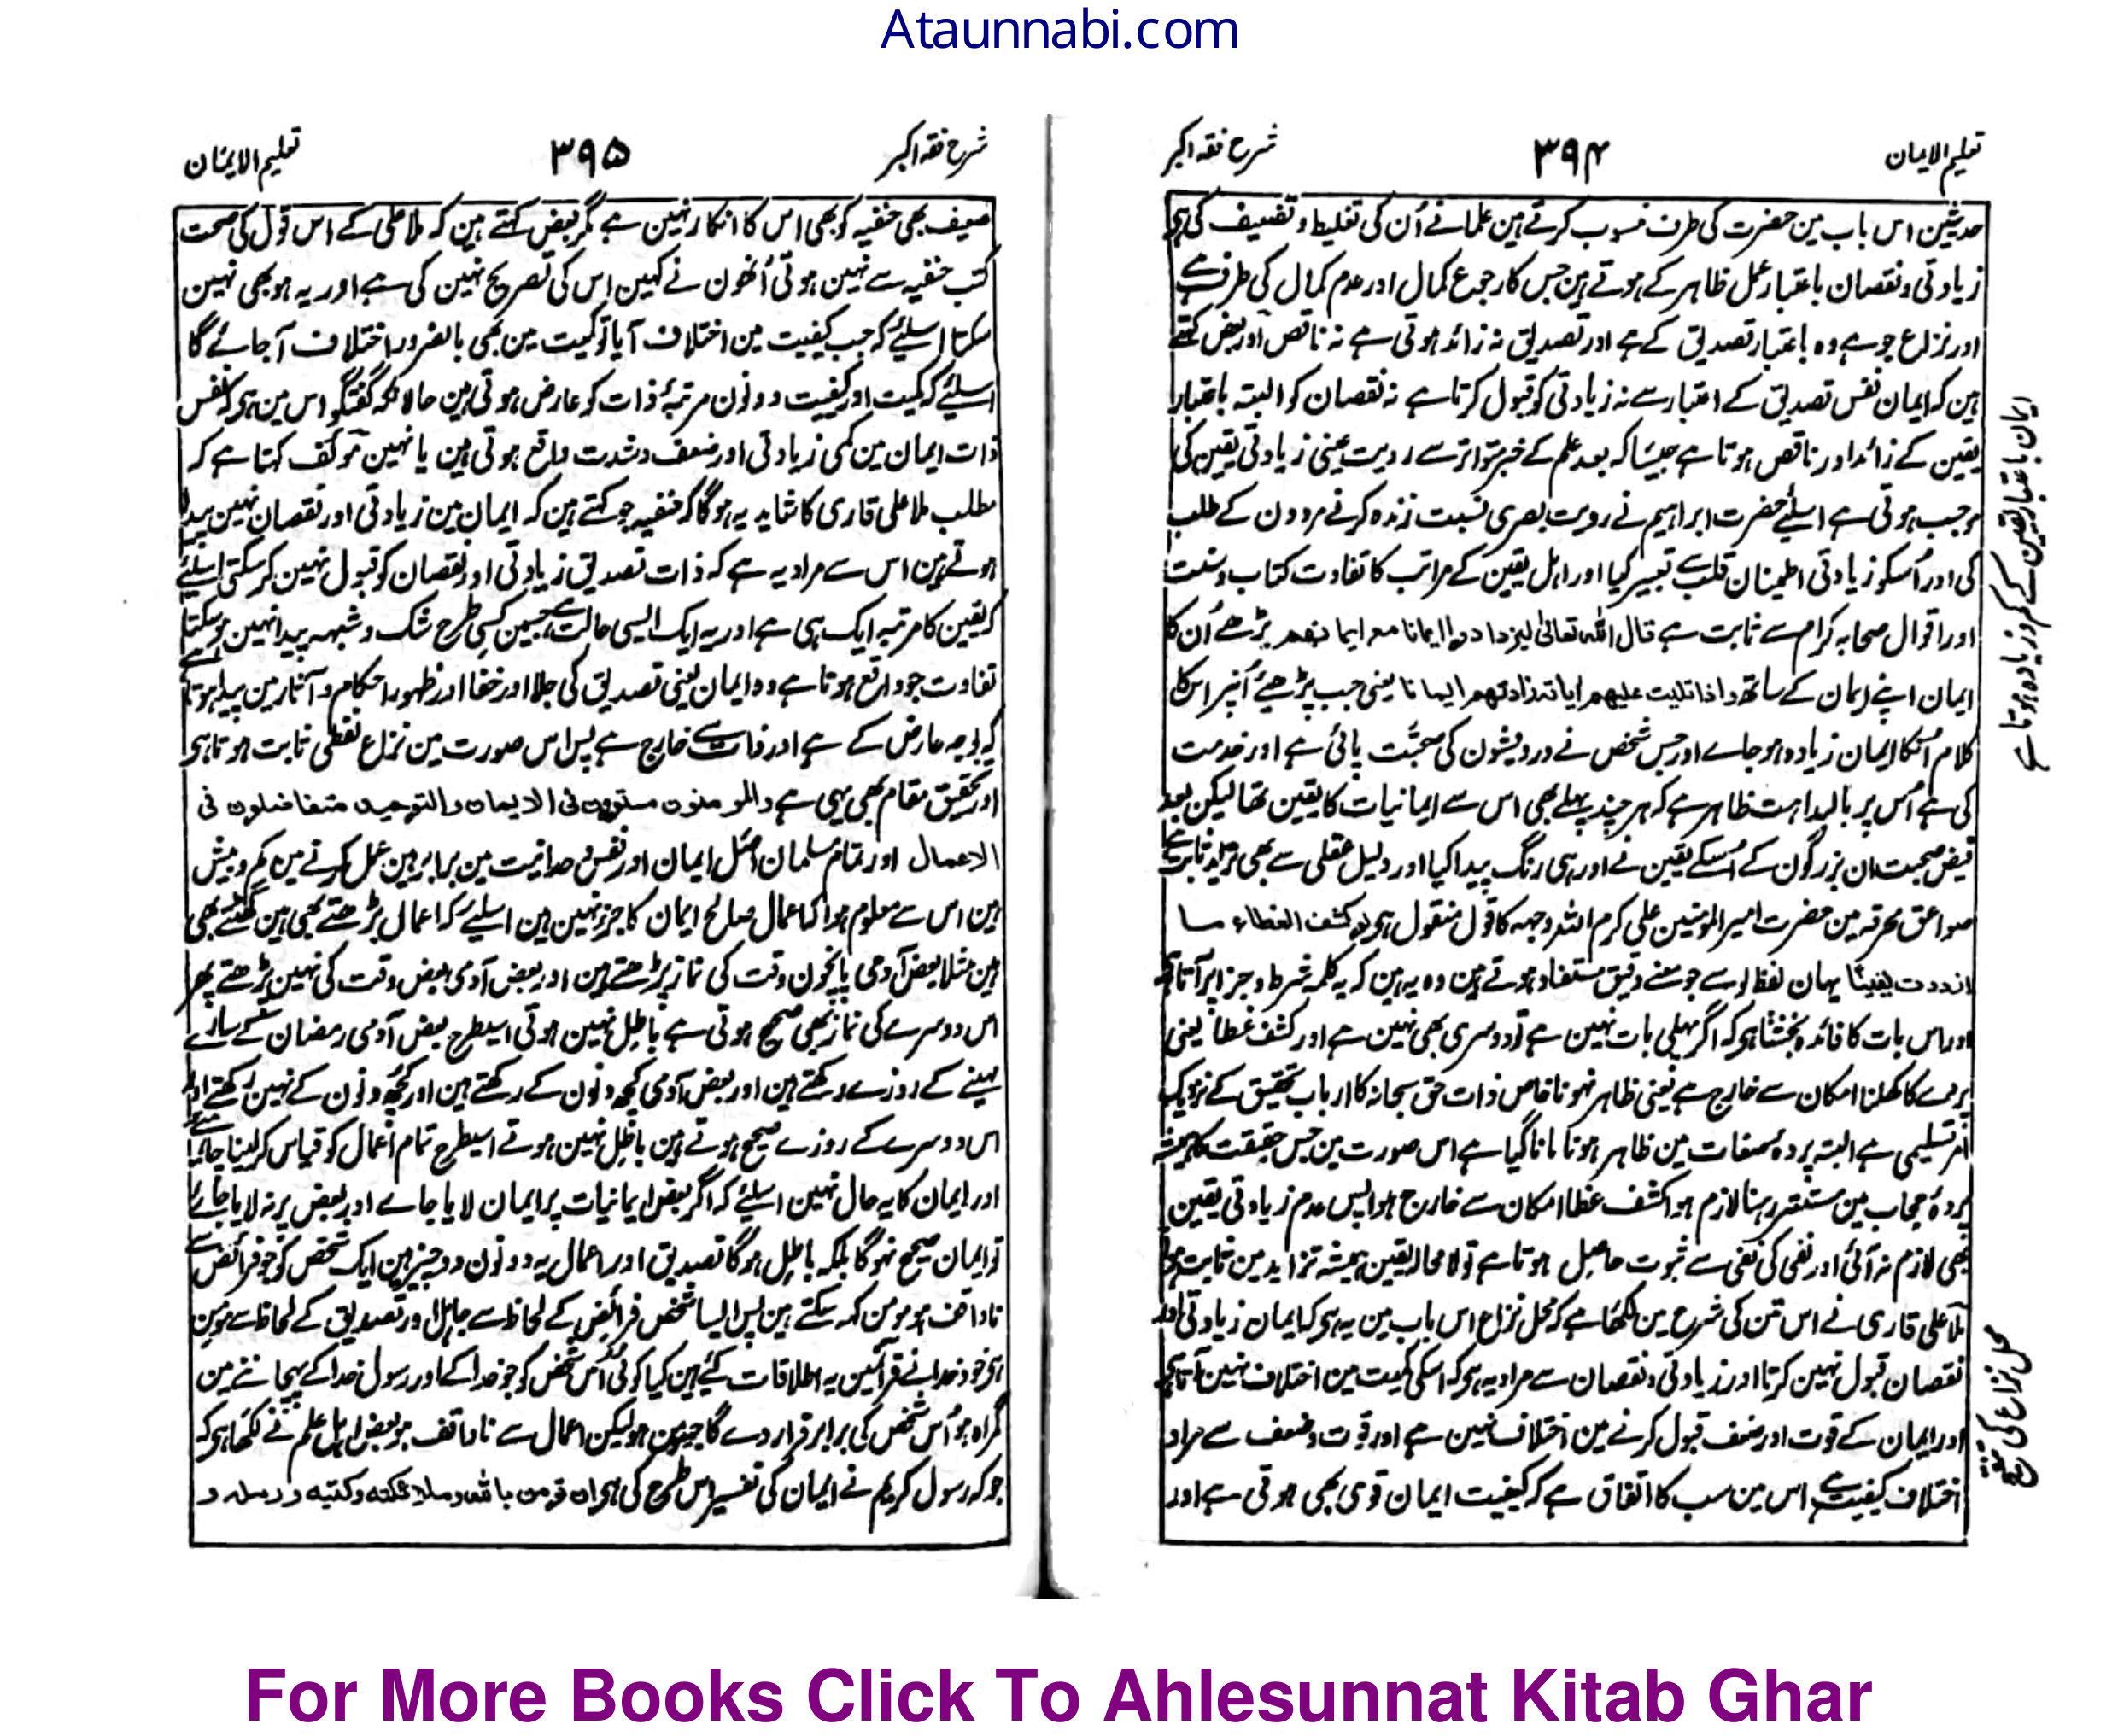 Ataunnabi.com
تعلیم الایمان ۳۹۴ شرح فقہ اکبر
حدیثین اس باب مین حضرت کی طرف منسوب کرتے ہین علمانے اُن کی تغلیط و تضعیف کی ہی
زیادتی و نقصان باعتبار عمل ظاہر کے ہوتے ہین جس کا رجوع کمال اور عدم کمال کی طرف ہے
اور نزاع جو ہے وہ باعتبار تصدیق کے ہے اور تصدیق نہ زائد ہوتی ہے نہ ناقص اور بعض کہتے
ہین کہ ایمان نفس تصدیق کے اعتبار سے نہ زیادتی کو قبول کرتا ہے نہ نقصان کو البتہ باعتبار
یقین کے زائد اور ناقص ہوتا ہے جیسا کہ بعد علم کے خبر متواتر سے رویت عینی زیادتی یقین کی
موجب ہوتی ہے اسلئے حضرت ابراہیم نے رویت بصری نسبت زندہ کرنے مردون کے طلب
کی اور اُسکو زیادتی اطمینان قلب سے تعبیر کیا اور اہل یقین کے مراتب کا تفاوت کتاب و سنت
اور اقوال صحابہ کرام سے ثابت ہے قال اللہ تعالیٰ لیزدادوا ایمانا مع ایمانھم بڑھے اُن کا
ایمان اپنے ایمان کے ساتھ واذا تلیت علیھم ایاتہ زادتھم ایمانا یعنی جب پڑھیے اُنپر اس کا
کلام اُنکا ایمان زیادہ ہو جاے اور جس شخص نے درویشون کی صحبت پائی ہے اور خدمت
کی ہے اُس پر بالبداہت ظاہر ہے کہ ہر چند پہلے بھی اس سے ایمانیات کا یقین تھا لیکن بعد
فیض صحبت ان بزرگون کے اُسکے یقین نے اور ہی رنگ پیدا کیا اور دلیل عقلی سے بھی تزاید ثابت ہے
صواعق محرقہ مین حضرت امیر المومنین علی کرم اللہ وجہہ کا قول منقول ہی لو کشف الغطاء ما
ازددت یقینًا یہان لفظ لو سے جو معنے دقیق مستفاد ہوتے ہین وہ یہ ہین کہ یہ کلمہ شرط و جزا پر آتا ہے
اور اس بات کا فائدہ بخشتا ہی کہ اگر پہلی بات نہین ہے تو دوسری بھی نہین ہے اور کشف غطا یعنی
پردے کا کھلنا امکان سے خارج ہے یعنی ظاہر نہونا خاص ذات حق سبحانہ کا ارباب تحقیق کے نزدیک
امر تسلیمی ہے البتہ پردہ صفات مین ظاہر ہونا مانا گیا ہے اس صورت مین جس حقیقت کا ہمیشہ
پردۂ حجاب مین مستتر رہنا لازم ہوا کشف غطا امکان سے خارج ہوا پس عدم زیادتی یقین
بھی لازم نہ آئی اور نفی کی نفی سے ثبوت حاصل ہوتا ہے تو لا محالہ یقین ہمیشہ تزاید مین ثابت ہوا
ملا علی قاری نے اس متن کی شرح مین لکھا ہے کہ محل نزاع اس باب مین یہ ہی کہ ایمان زیادتی اور
نقصان قبول نہین کرتا اور زیادتی و نقصان سے مراد یہ ہی کہ اسکی کمیت مین اختلاف نہین آتا ہے
اور ایمان کے قوت اور ضعف قبول کرنے مین اختلاف نہین ہے اور قوت و ضعف سے مراد
اختلاف کیفیت ہے اس مین سب کا اتفاق ہے کہ کیفیت ایمان قوی بھی ہوتی ہے اور
ایمان باعتبار یقین کے کم و زیادہ ہوتا ہے
محل نزاع کی تنقیح
شرح فقہ اکبر ۳۹۵ تعلیم الایمان
ضعیف بھی حنفیہ کو بھی اس کا انکار نہین ہے مگر بعض کہتے ہین کہ ملا علی کے اس قول کی صحت
کتب حنفیہ سے نہین ہوتی اُنھون نے کہین اس کی تصریح نہین کی ہے اور یہ ہو بھی نہین
سکتا اسلئے کہ جب کیفیت مین اختلاف آیا تو کمیت مین بھی بالضرور اختلاف آجائے گا
اسلئے کہ کمیت اور کیفیت دونون مرتبۂ ذات کو عارض ہوتی ہین حالانکہ گفتگو اس مین ہی کہ نفس
ذات ایمان مین کمی زیادتی اور ضعف و شدت واقع ہوتی ہین یا نہین مؤلف کہتا ہے کہ
مطلب ملا علی قاری کا شاید یہ ہوگا کہ حنفیہ جو کہتے ہین کہ ایمان مین زیادتی اور نقصان نہین پیدا
ہوتے ہین اس سے مراد یہ ہے کہ ذات تصدیق زیادتی اور نقصان کو قبول نہین کر سکتی اسلئے
کہ یقین کا مرتبہ ایک ہی ہے اور یہ ایک ایسی حالت ہے جسمین کسی طرح شک و شبہہ پیدا نہین ہو سکتا
تفاوت جو واقع ہوتا ہے وہ ایمان یعنی تصدیق کی جلا اور خفا اور ظہور احکام و آثار مین پیدا ہوتا ہے
کہ بوجہ عارض کے ہے اور ذات سے خارج ہے پس اس صورت مین نزاع لفظی ثابت ہوتا ہی
اور تحقیق مقام بھی یہی ہے والمومنون مستوون فی الایمان والتوحید متفاضلون فی
الاعمال اور تمام مسلمان اصل ایمان اور نفس وحدانیت مین برابر ہین عمل کرنے مین کم و بیش
ہین اس سے معلوم ہوا کہ اعمال صالح ایمان کا جز نہین ہین اسلئے کہ اعمال بڑھتے بھی ہین گھٹتے بھی
ہین مثلا بعض آدمی پانچون وقت کی نماز پڑھتے ہین اور بعض آدمی بعض وقت کی نہین پڑھتے پھر
اس دوسرے کی نماز بھی صحیح ہوتی ہے باطل نہین ہوتی اسیطرح بعض آدمی رمضان کے سارے
مہینے کے روزے رکھتے ہین اور بعض آدمی کچھ دنون کے رکھتے ہین اور کچھ دنون کے نہین رکھتے اور
اس دوسرے کے روزے صحیح ہوتے ہین باطل نہین ہوتے اسیطرح تمام اعمال کو قیاس کر لینا چاہیے
اور ایمان کا یہ حال نہین اسلئے کہ اگر بعض ایمانیات پر ایمان لایا جاے اور بعض پر نہ لایا جائے
تو ایمان صحیح نہوگا بلکہ باطل ہوگا تصدیق اور اعمال یہ دونون دو چیز ہین ایک شخص کو جو فرائض سے
ناواقف ہو مومن کہہ سکتے ہین پس ایسا شخص فرائض کے لحاظ سے جاہل اور تصدیق کے لحاظ سے مومن
ہی خود خدا نے قرآنمین یہ اطلاقات کئے ہین کیا کوئی اُس شخص کو جو خدا کے اور رسول خدا کے پہچاننے مین
گمراہ ہو اُس شخص کی برابر قرار دے گا جو مومن ہو لیکن اعمال سے ناواقف ہو بعض اہل علم نے لکھا ہی کہ
جو کہ رسول کریم نے ایمان کی تفسیر اس طرح کی ہی ان تومن باللہ وملائکتہ وکتبہ ورسلہ و
For More Books Click To Ahlesunnat Kitab Ghar